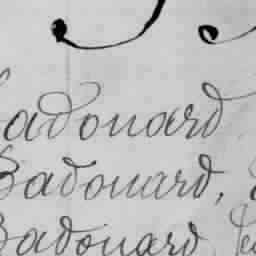 Badouard
Badouard,
Badouard